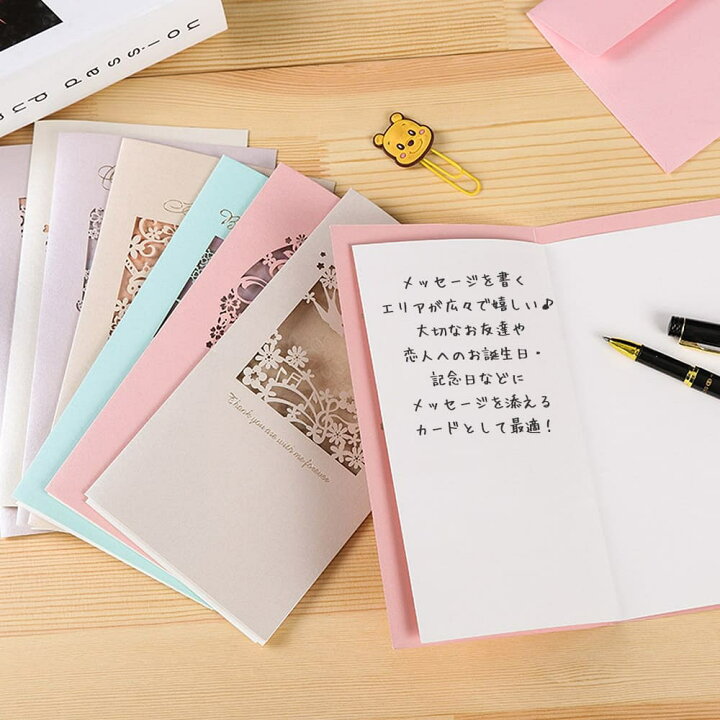 pud passion
メッセージを書く
エリアが広々で嬉しい♪
大切なお友達や
恋人へのお誕生日・
記念日などに
メッセージを添える
カードとして最適！
Thank you are with me forever